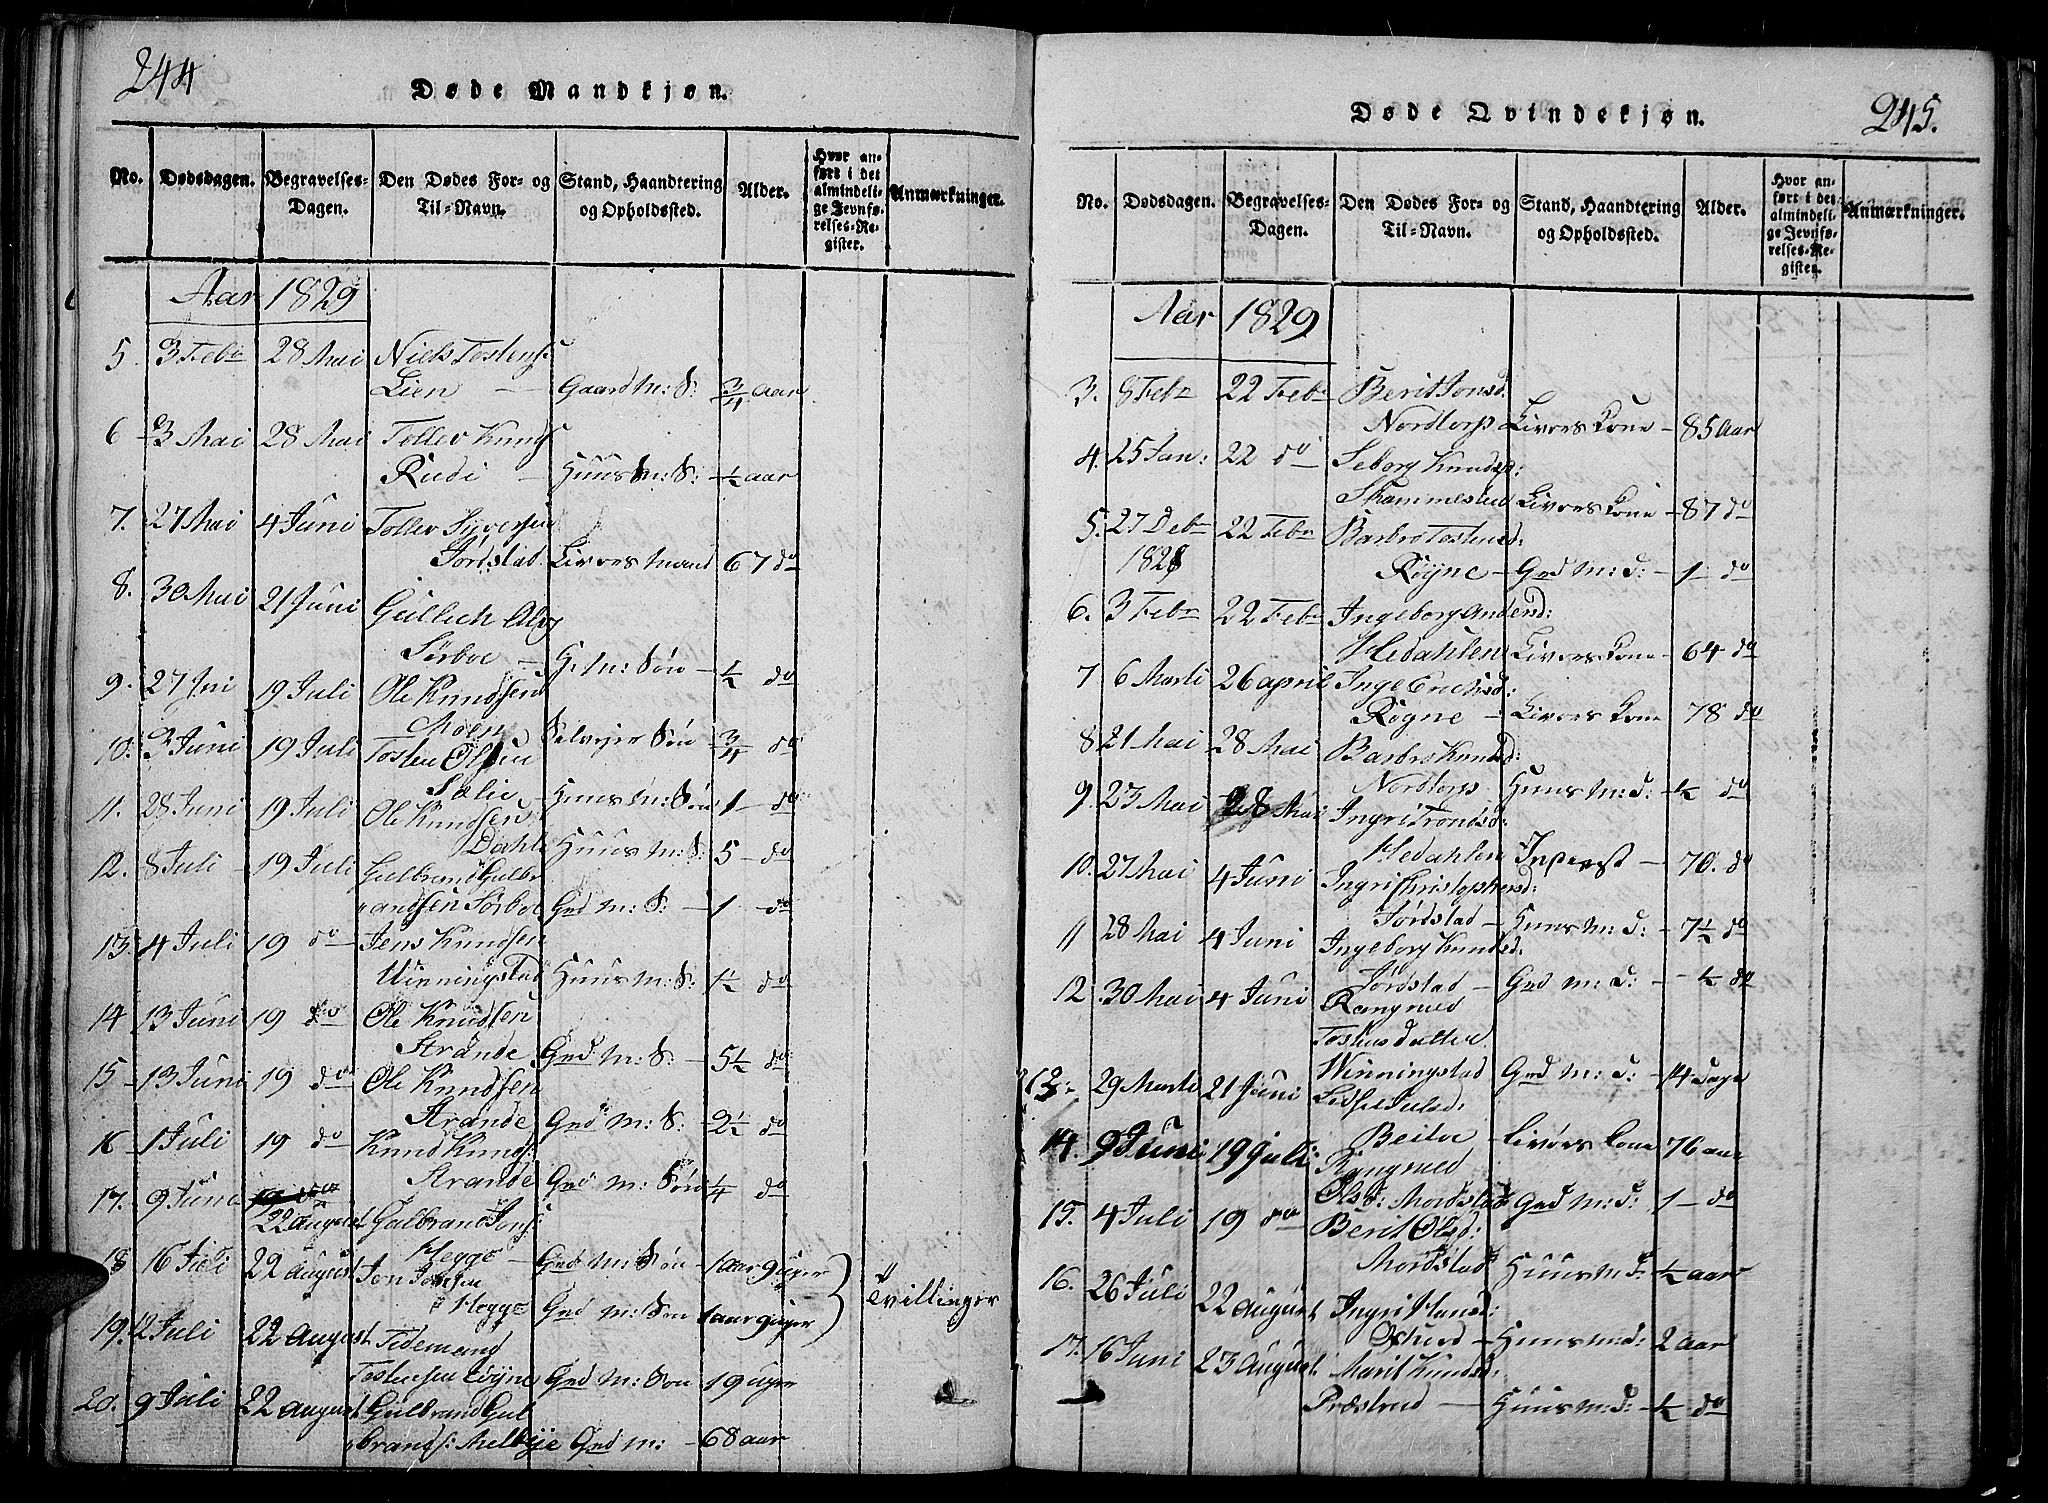 244
Døde Mandkjøn.
No. Dødsdagen. Begravelses-Dagen. Den Dødes For- og Til-Navn. Stand, Haandtering og Opholdssted. Alder. Hvor anført i det almindelige Jevnførelses-Register. Anmærkninger.
Aar 1829
5. 3 Febr 28 Mai Niels Tostens:
Lien — Gaardm: S: 3/4 aar
6 3 Mai 28 Mai Toller Knuds
Rudi — Huusm: S: ½ aar
7. 27 Mai 4 Juni Toller Syversen
Jördstad Livörsmand 67 do
8. 30 Mai 21 Juni Gullich
Sörboe — G: m: Sön — ½ do
9. 27 19 Juli Ole Knudsen
Moen Selvejer Sön 3/4 do
10. 3 Juni 19 Juli Tosten Olsen
Huusm: Sön 1 — do
11. 28 Juni 19 Juli Ole Knudsen
Dahle Huusm: S: 5 — do
12. 8 Juli 19 Juli Gulbrand Gulbr
andsen Sörboe Grd m: S: — 1 do
13. 4 Juli 19 do Jens Knudsen
Winningstad Huusm: S: 1½ do
14 13 Juni 19 do Ole Knudsen
Strande Grd m: S: — 5½ do
15 — 13 Juni 19 do Ole Knudsen
Strande Grd m: S: — 2½ do
16 1 Juli 19 do Knud Knuds:
Strande Grd m: Sön ¼ do
17. 9 Juni
22 August Gulbrand Jons:
Hegge — Grd m: Sön — 1 aar 9 uger
18 16 Juli 22 August Jon Jonsen
Hegge Grd m: Sön 1 aar 9 uger Tvillinger
19. 2 Juli 22 August Tidemand
Tostensen Röyne Grd m: Sön — 19 uger
20. 9 Juli 22 August Gulbrand Gul
brands: Melbye Grd m: — 68 aar
245.
Døde Qvindekjøn.
No. Dødsdagen. Begravelses-Dagen. Den Dødes For- og Til-Navn. Stand, Haandtering og Opholdssted. Alder. Hvor anført i det almindelige Jevnførelses-Register. Anmærkninger.
Aar 1829
3. 8 Febr 22 Febr Berit Jonsd.
Nordtorp Livörskone — 85 Aar
4. 25 Jan: 22 do Seborg Knudsd:
Skammestad Livörskone — 87 do
5. 27 Debr 22 Febr Barbro Tostensd:
1828 Röyne — Grd m: d: — 1 — do
6. 3 Febr 22 Febr Ingeborg Andersd:
Hedahlen Livörskone — 64 do
7 6 Marti 26 april Inge Erichsd:
Rögne — Livörskone 78 do
8 21 Mai 28 Mai Barbro Knudsd:
Nordtorp Huusm: d: ½ do
9. 23 Mai 28 Mai Ingri Trondsd:
Hedahlen — 70. do
10. 27 Mai 4 Juni Ingri Christophersd:
Jördstad — Huusm: d: — 7½ do
11 28 Mai 4 Juni Ingeborg Knudsd:
Jördstad — Grd m: d: — ½ do
12 30 Mai 4 Juni Rangned
Tostensdatter
Winningstad Grd m: d: — 14 dage
13. 29 Marti 21 Juni
Beitoe — Livörskone 76 aar
14. 9 Juni 19 Juli Rangned
Olsd: Mordstad Grd m: d: 1 — do
15. 4 Juli 19 do Berit Olsd:
Mordstad Huusm: d: ½ aar
16. 26 Juli 22 August Ingri Hansd:
— Huusm: d: 2 aar
17. 16 Juni 23 August Marit Knudsd:
Præstrud — Huusm: d: — ½ do